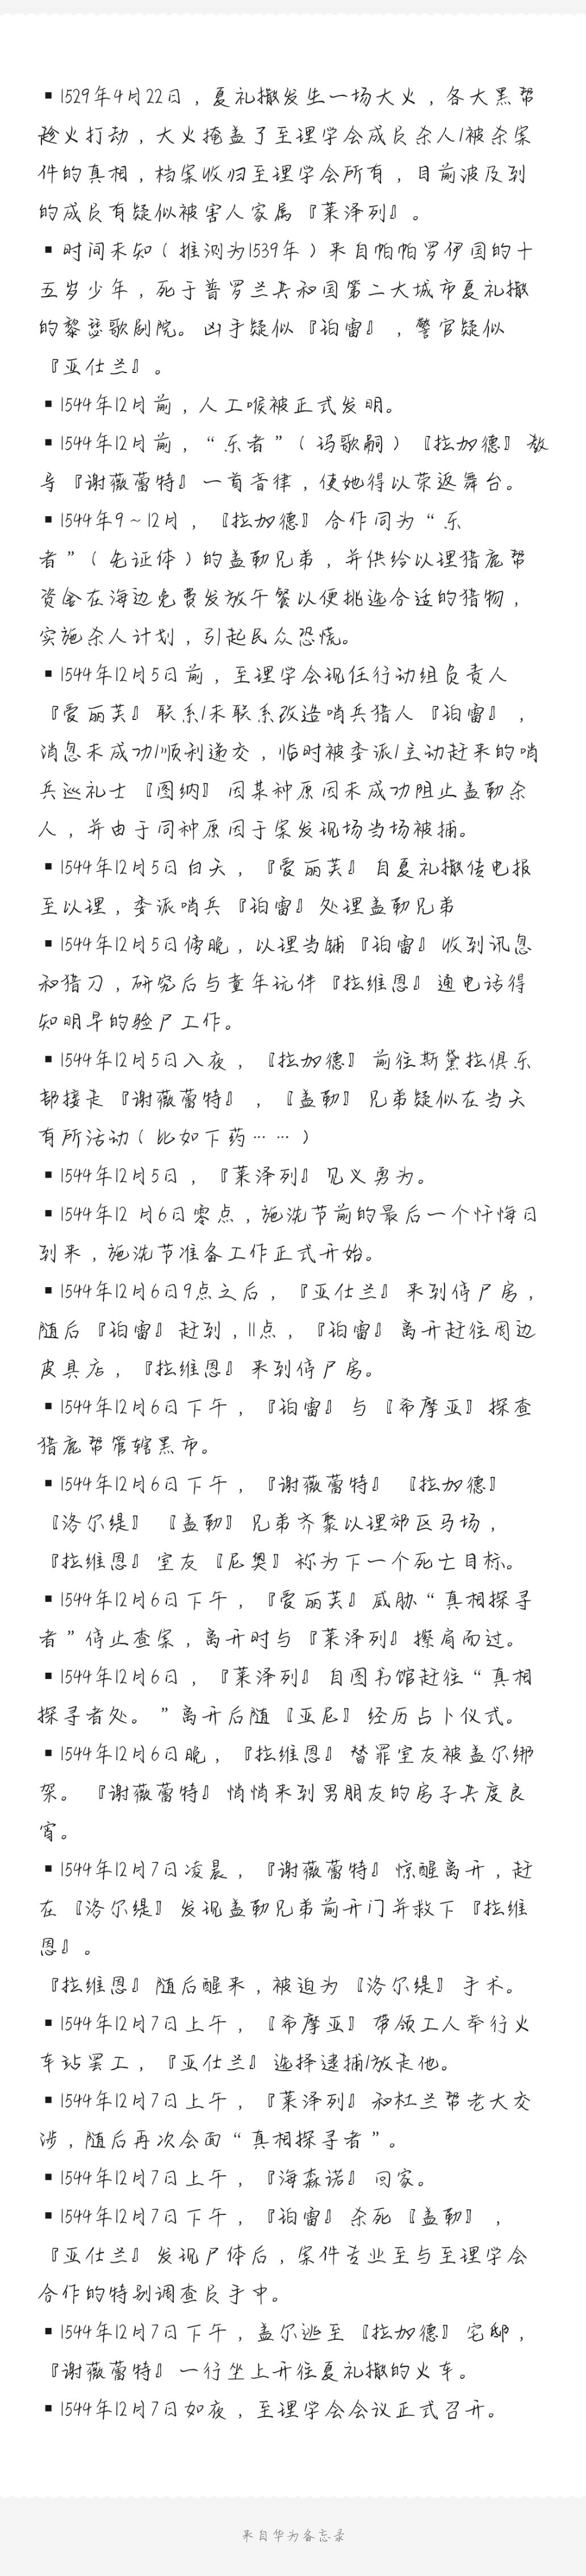 ▪1529年4月22日，夏礼撒发生一场大火，各大黑帮
趁火打劫，大火掩盖了至理学会成员杀人/被杀案
件的真相，档案收归至理学会所有，目前波及到
的成员有疑似被害人家属『莱泽列』。
▪时间未知（推测为1539年）来自帕帕罗伊国的十
五岁少年，死于普罗兰共和国第二大城市夏礼撒
的黎瑟歌剧院。凶手疑似『铂雷』，警官疑似
『亚仕兰』。
▪1544年12月前，人工喉被正式发明。
▪1544年12月前，“乐者”（玛歌嗣）〖拉加德〗教
导『谢薇蕾特』一首音律，使她得以荣返舞台。
▪1544年9~12月，〖拉加德〗合作同为“乐
者”（先证体）的盖勒兄弟，并供给以理猎鹿帮
资金在海边免费发放午餐以便挑选合适的猎物，
实施杀人计划，引起民众恐慌。
▪1544年12月5日前，至理学会现任行动组负责人
『爱丽芙』联系/未联系改造哨兵猎人『铂雷』，
消息未成功/顺利递交，临时被委派/主动赶来的哨
兵巡礼士〖图纳〗因某种原因未成功阻止盖勒杀
人，并由于同种原因于案发现场当场被捕。
▪1544年12月5日白天，『爱丽芙』自夏礼撒传电报
至以理，委派哨兵『铂雷』处理盖勒兄弟
▪1544年12月5日傍晚，以理当铺『铂雷』收到讯息
和猎刀，研究后与童年玩伴『拉维恩』通电话得
知明早的验尸工作。
▪1544年12月5日入夜，〖拉加德〗前往斯黛拉俱乐
部接走『谢薇蕾特』，〖盖勒〗兄弟疑似在当天
有所活动（比如下药……）
▪1544年12月5日，『莱泽列』见义勇为。
▪1544年12 月6日零点，施洗节前的最后一个忏悔日
到来，施洗节准备工作正式开始。
▪1544年12月6日9点之后，『亚仕兰』来到停尸房，
随后『铂雷』赶到，11点，『铂雷』离开赶往周边
皮具店，『拉维恩』来到停尸房。
▪1544年12月6日下午，『铂雷』与〖希摩亚〗探查
猎鹿帮管辖黑市。
▪1544年12月6日下午，『谢薇蕾特』〖拉加德〗
〖洛尔缇〗〖盖勒〗兄弟齐聚以理郊区马场，
『拉维恩』室友〖尼奥〗称为下一个死亡目标。
▪1544年12月6日下午，『爱丽芙』威胁“真相探寻
者”停止查案，离开时与『莱泽列』擦肩而过。
▪1544年12月6日，『莱泽列』自图书馆赶往“真相
探寻者处。”离开后随〖亚尼〗经历占卜仪式。
▪1544年12月6日晚，『拉维恩』替罪室友被盖尔绑
架。『谢薇蕾特』悄悄来到男朋友的房子共度良
宵。
▪1544年12月7日凌晨，『谢薇蕾特』惊醒离开，赶
在〖洛尔缇〗发现盖勒兄弟前开门并救下『拉维
恩』。
『拉维恩』随后醒来，被迫为〖洛尔缇〗手术。
▪1544年12月7日上午，〖希摩亚〗带领工人举行火
车站罢工，『亚仕兰』选择逮捕/放走他。
▪1544年12月7日上午，『莱泽列』和杜兰帮老大交
涉，随后再次会面“真相探寻者”。
▪1544年12月7日上午，『海森诺』回家。
▪1544年12月7日下午，『铂雷』杀死〖盖勒〗，
『亚仕兰』发现尸体后，案件专业至与至理学会
合作的特别调查员手中。
▪1544年12月7日下午，盖尔逃至〖拉加德〗宅邸，
『谢薇蕾特』一行坐上开往夏礼撒的火车。
▪1544年12月7日如夜，至理学会会议正式召开。
来自华为备忘录